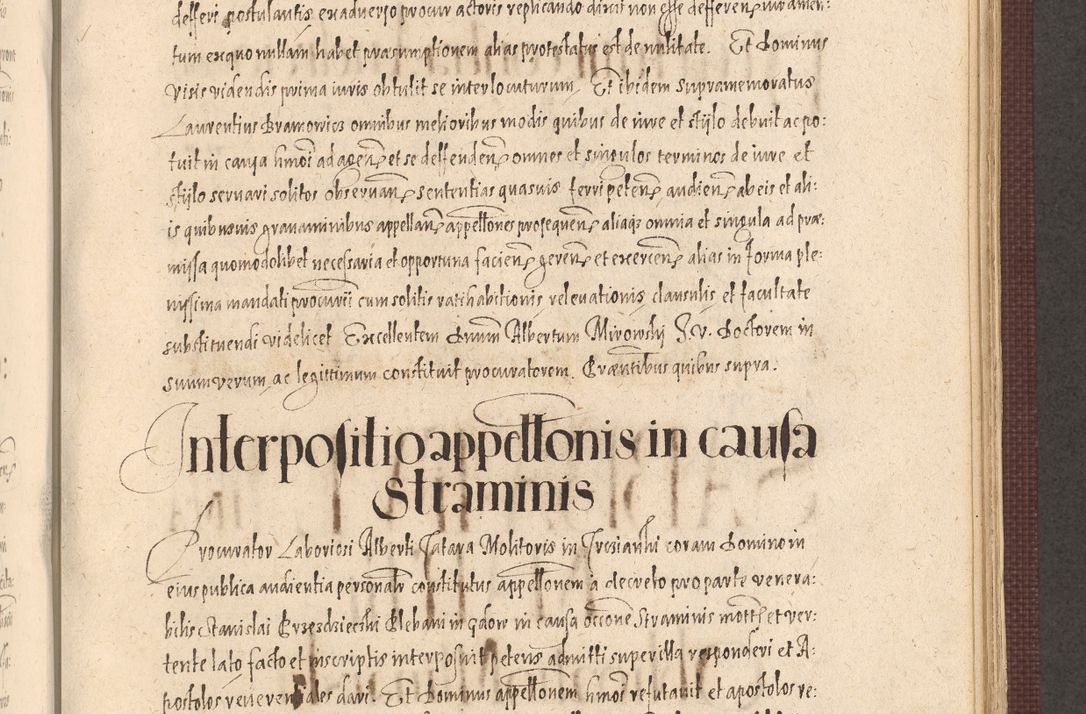 defferi postulantis ex adverso procur actoris replicando dixit non esse defferen juramen:
tum ex quo nullam habet præsumptionem alias protestatus est de nulitate. Et Dominus
visis videndis prima iuris obtulit se interlocuturum. Et ibidem supramemoratus
Laurentius Bramowicz omnibus melioribus modis quibus de iure et stijlo debuit ac po:
tuit in causa hmoi ad agen et se deffenden omnes et singulos terminos de iure et
stijlo servari solitos observan sententias quasvis ferri peten audien ab eis et ali:
is quibusvis gravaminibus appellan appellones prosequen aliaq omnia et singula ad præ:
missa quomodolibet necessaria et opportuna facien geren et exercen alias in forma ple:
nissima mandati procurei cum solitis ratihabitionis relevationis clausulis et facultate
substituendi videlicet Excellentem Dnum Albertum Mirowski J.V. Doctorem in
suum verum ac legittimum constituit procuratorem. Præntibus quibus supra.
Interpositio appellonis in causa
Straminis
Procurator Laboriosi Alberti Tatara Molitoris in coram Domino in
eius publica audientia personalr constitutus appellonem a decreto pro parte venera:
bilis Stanislai Plebani in in causa occone Straminis et ver:
tente lato facto et inscriptis interposuit petens admitti super illa responderi et A:
postolos reverentiales dari. Et Dominus appellonem hmoi refutavit et apostolos re: